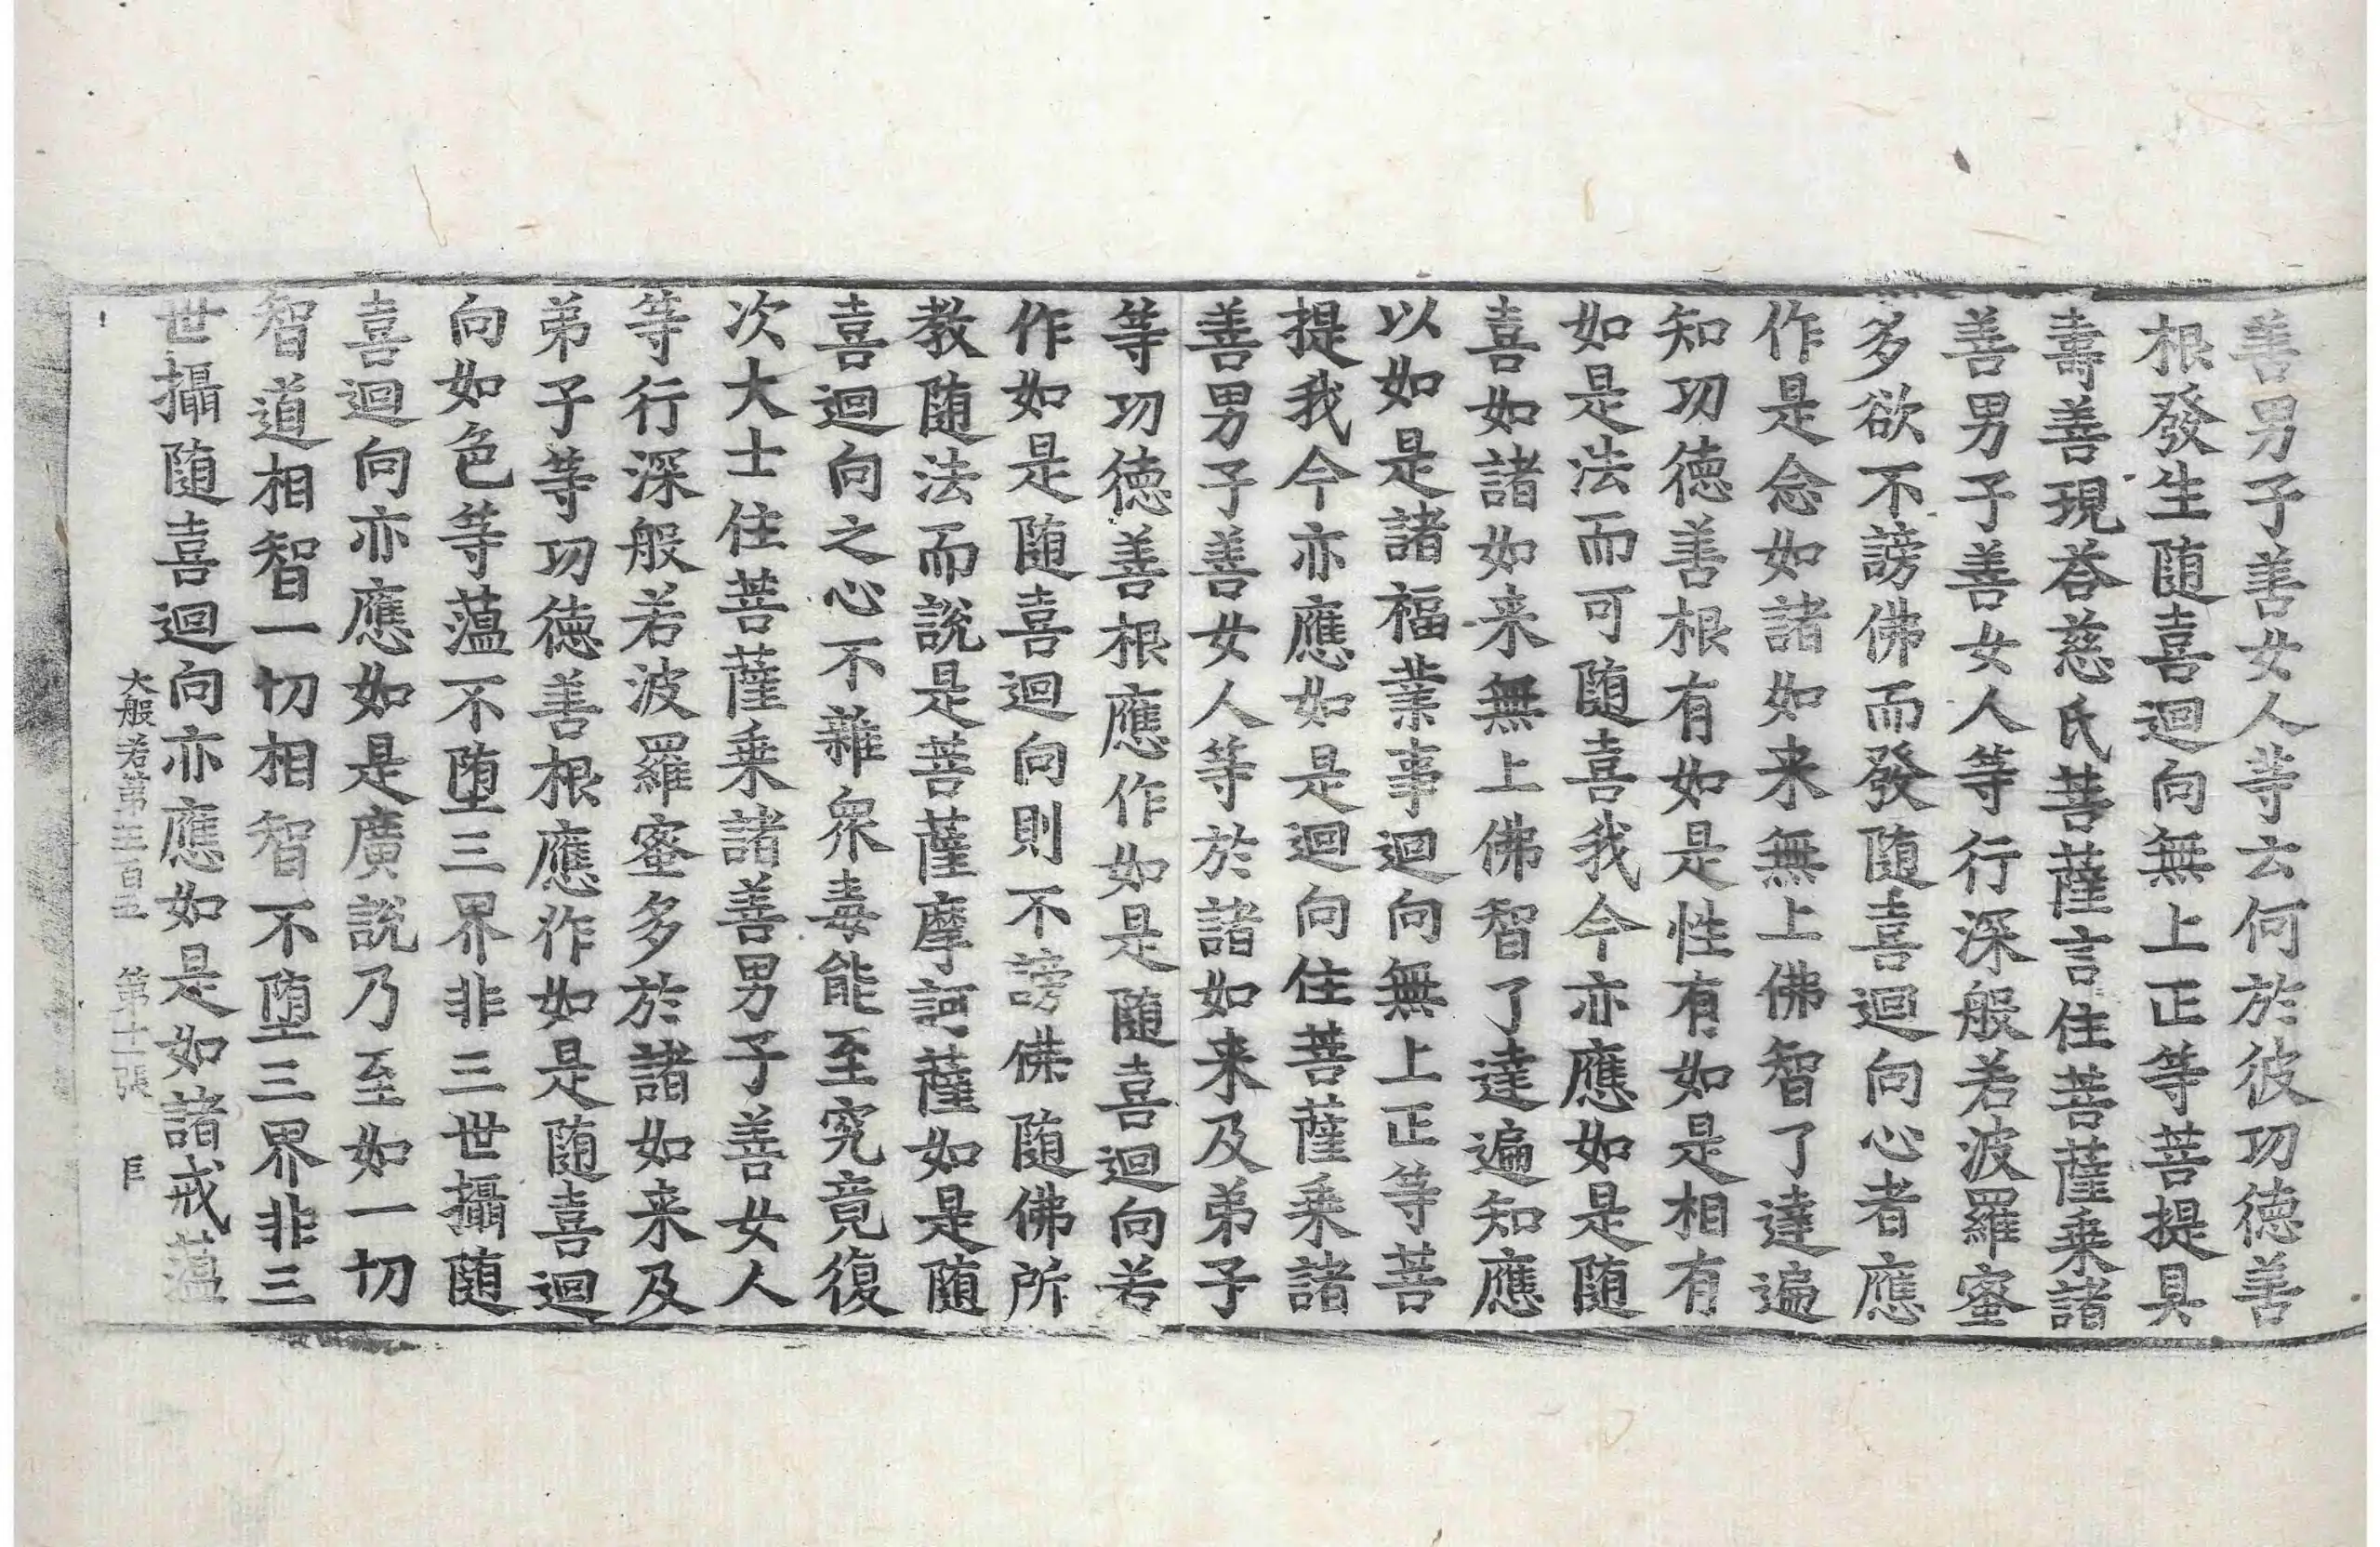 善男子善女人等云何於彼功德善
根發生随喜迴向無上正等菩提具
壽善現荅慈氏菩薩言住菩薩乗諸
善男子善女人等行深般若波羅蜜
多欲不謗佛而發随喜迴向心者應
作是念如諸如来無上佛智了達遍
知功徳善根有如是性有如是相有
如是法而可随喜我今亦應如是随
喜如諸如来無上佛智了達遍知應
以如是諸福業事迴向無上正等菩
提我今亦應如是迴向住菩薩乗諸
善男子善女人等於諸如来及弟子
等功徳善根應作如是随喜迴向若
作如是随喜迴向則不謗佛随佛所
教随法而說是菩薩摩訶薩如是随
喜迴向之心不雜衆毒能至究竟復
次大士住菩薩乗諸善男子善女人
等行深般若波羅蜜多於諸如来及
弟子等功徳善根應作如是随喜迴
向如色等蕰不堕三界非三世攝随
喜迴向亦應如是廣說乃至如一切
智道相智一切相智不堕三界非三
世攝随喜迴向亦應如是如諸戒蕰
大般若第五百五 第十一張